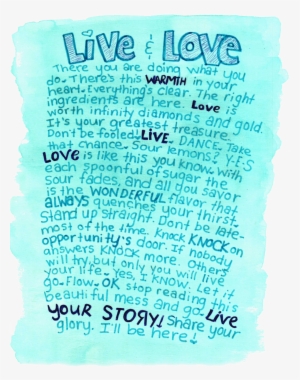 LIVE & LOVE
There you are doing what you
do. There's this WARMTH in your
heart. Everything's clear. The right
ingredients are here. Love is
worth infinity diamonds and gold.
It's your greatest treasure.
Don't be fooled! LIVE. DANCE. Take
that chance. Sour lemons? Y-E-S
LOVE is like this you know. With
each spoonful of sugar the
sour fades, and all you savor
is the WONDERFUL flavor that
always quenches your thirst.
Stand up straight. Don't be late-
most of the time. Knock KNOCK on
opportunity's door. If nobody
answers KNOCK more. Others
will try, but only you will live
your life. Yes, I know. Let it
go. Flow. OK stop reading this
beautiful mess and go Live
YOUR STORY! Share your
glory. I'll be here!